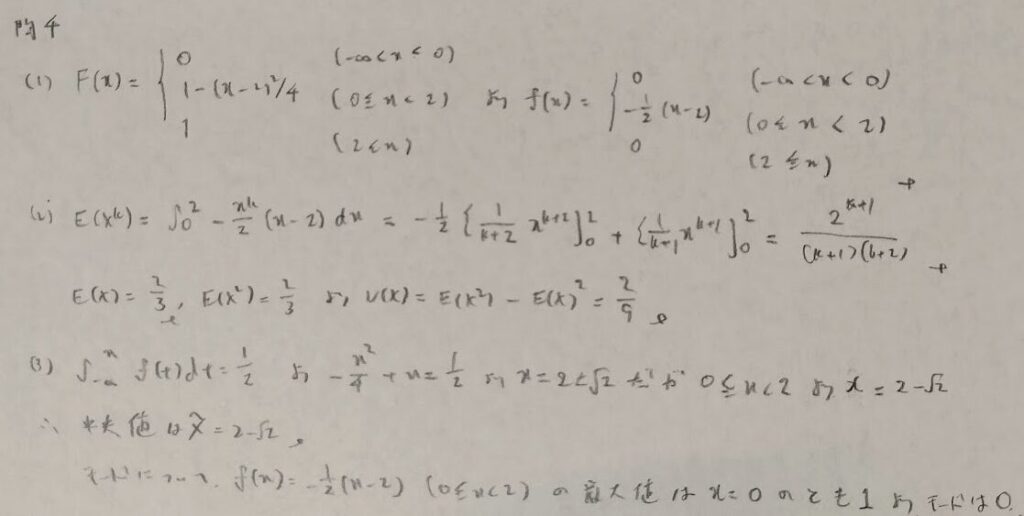 問4
(1) F(x) = { 0 (-∞<x<0) 1-(x-2)²/4 (0≦x<2) 1 (2<x) より f(x) = { 0 (-∞<x<0) -1/2(x-2) (0≦x<2) 0 (2≦x)
(2) E(X^k) = ∫₀² -x^k/2 (x-2) dx = -1/2 {1/(k+2) x^{k+2}]₀² + {1/(k+1) x^{k+1}]₀² = 2^{k+1}/((k+1)(k+2))
E(X) = 2/3, E(X²) = 2/3 より, V(X) = E(X²) - E(X)² = 2/9
(3) ∫_{-∞}^x f(t)dt = 1/2 より -x²/4 + x = 1/2 より x = 2±√2 だが 0≦x<2 より x = 2-√2
∴ 中央値は x̃ = 2-√2
モードについて. f(x) = -1/2(x-2) (0≦x<2) の最大値は x=0 のとき 1 より モードは0.